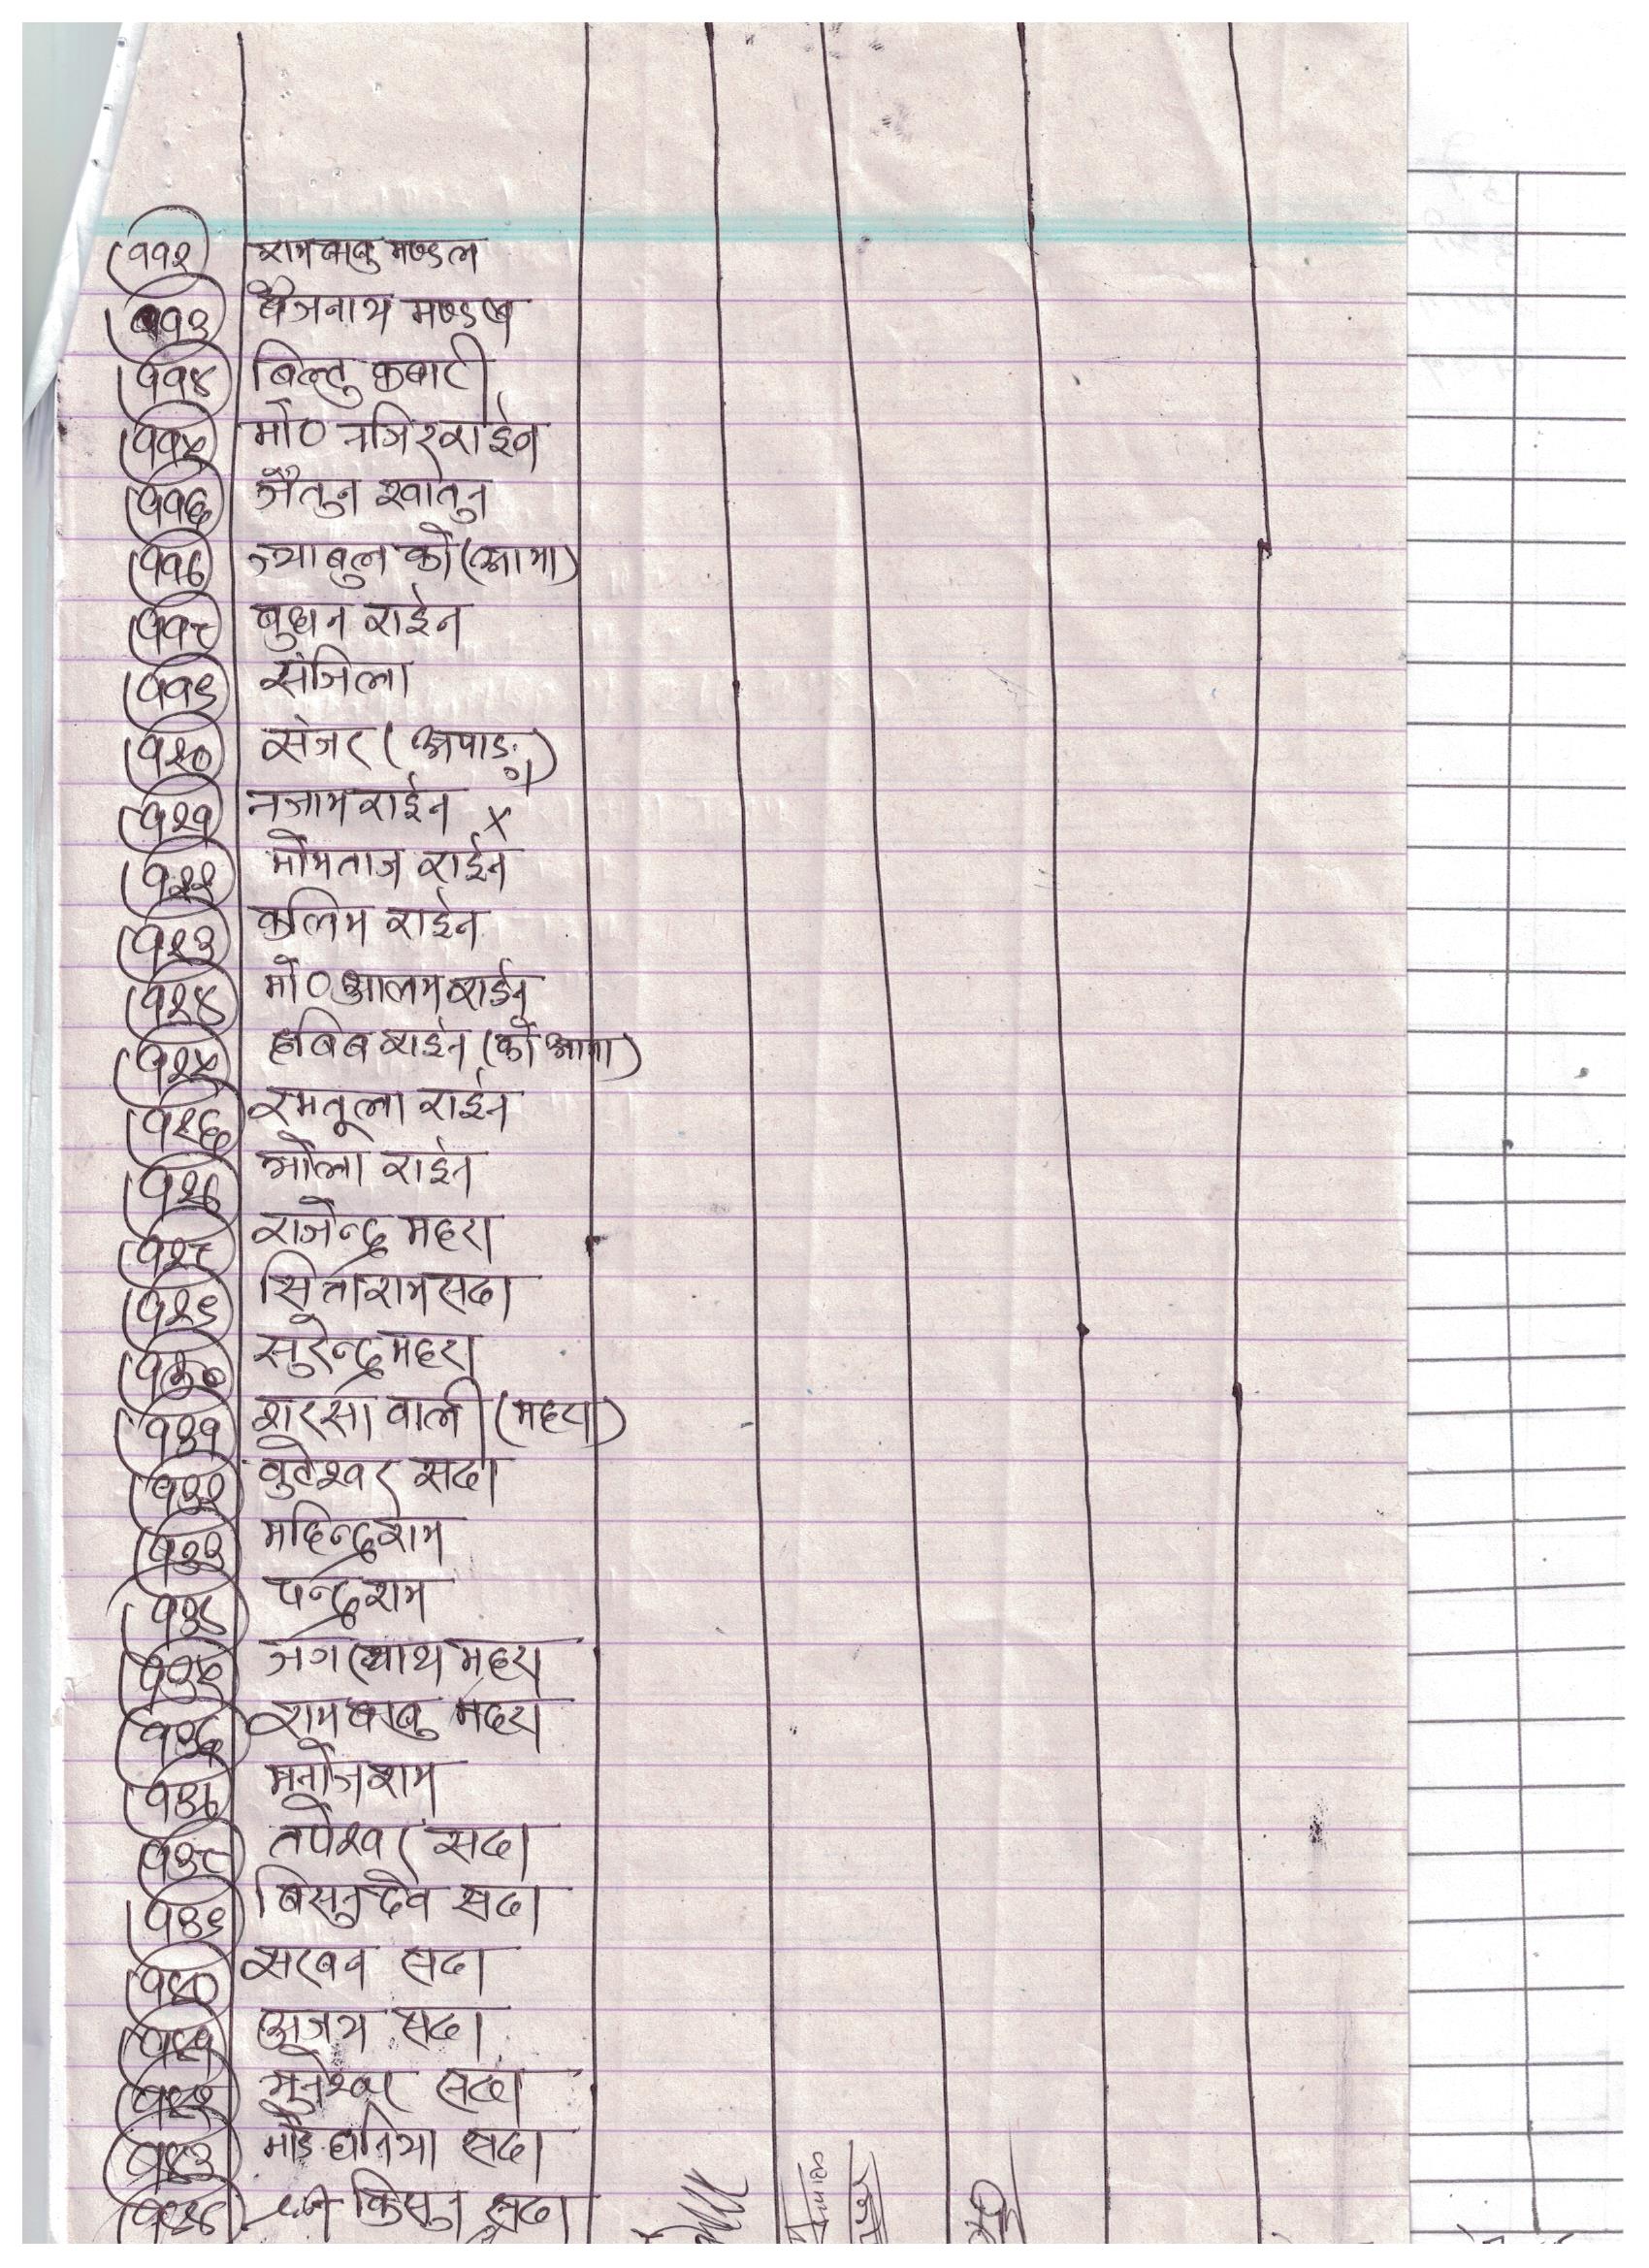 ११२ रामबाबु मण्डल
११३ बैजनाथ मण्डल
११४ बिल्टु कबाटी
११५ मो० नजिर राईन
११६ जैतुन खातुन
११७ ज्याबुल को (आमा)
११८ बुधन राईन
११९ संजिला
१२० संजर (अपाङ्ग)
१२१ नजाम राईन x
१२२ मोमताज राईन
१२३ कलिम राईन
१२४ मो० आलम राईन
१२५ हबिब राईन (को आमा)
१२६ रमतूला राईन
१२७ भोला राईन
१२८ राजेन्द्र महरा
१२९ सिताराम सदा
१३० सुरेन्द्र महरा
१३१ शुरसा वाली (महरा)
१३२ बुटेश्वर सदा
१३३ महिन्द्र राम
१३४ चन्द्र राम
१३५ जगरनाथ महरा
१३६ रामबाबु महरा
१३७ मनोज राम
१३८ तपेश्वर सदा
१३९ बिसुनदेव सदा
१४० सरबन सदा
१४१ अजय सदा
१४२ मुनेश्वर सदा
१४३ धनिया सदा
१४४ किसुन सदा